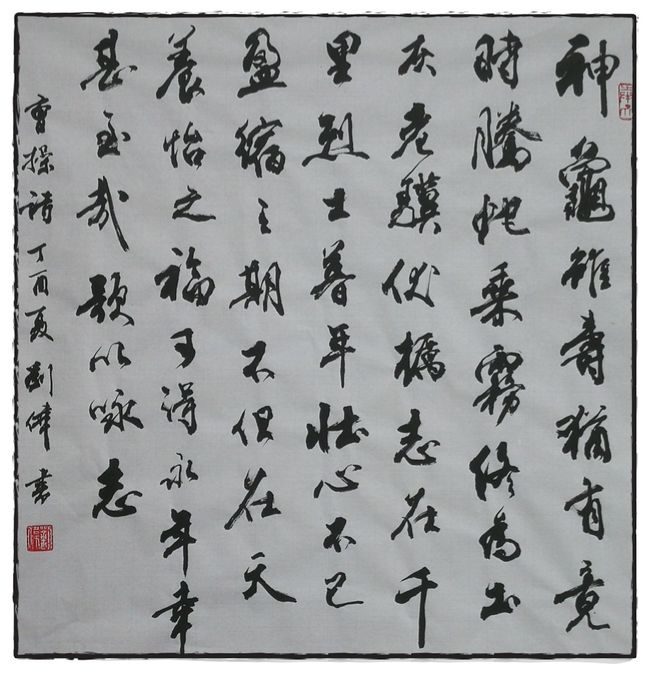 神龜雖壽猶有竟
時騰蛇乘霧終為土
灰老驥伏櫪志在千
里烈士暮年壯心不已
盈縮之期不但在天
養怡之福可得永年幸
甚至哉歌以詠志
曹操詩丁酉夏劉偉書